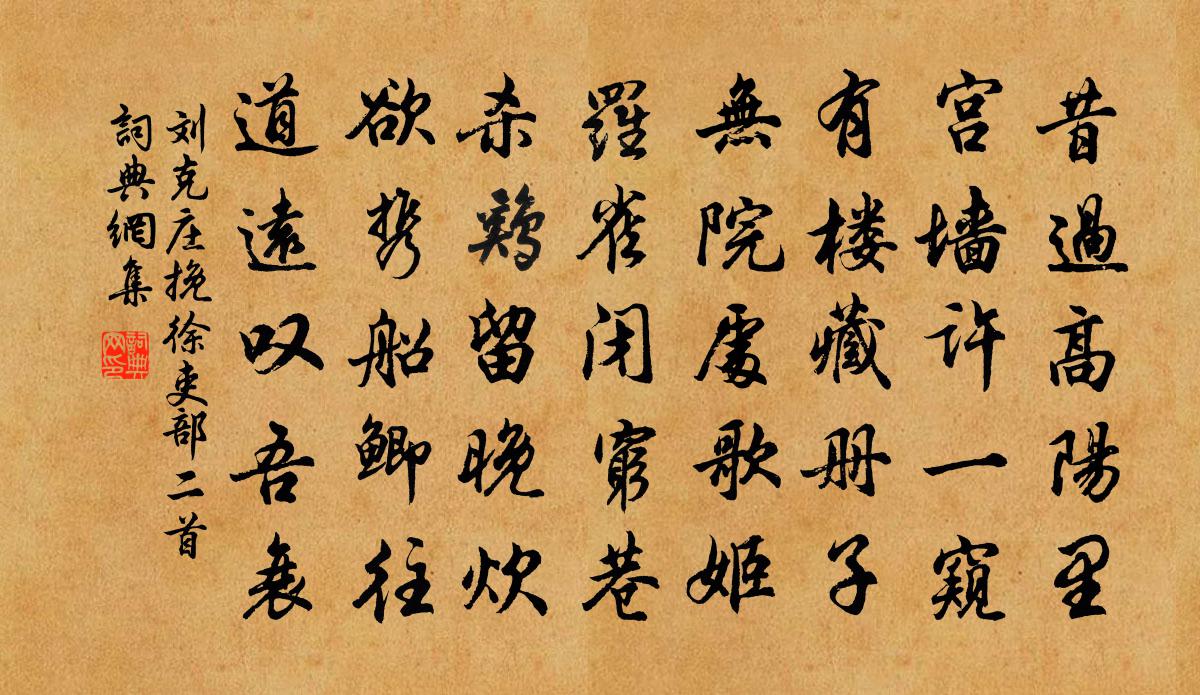 昔過高陽里
宫墙許一窺
有楼藏册子
無院處歌姬
羅雀闭窮巷
杀鷄留晚炊
欲携船鲫往
道遠叹吾衰
刘克庄挽徐吏部二首
詞典網集
詞典
网印